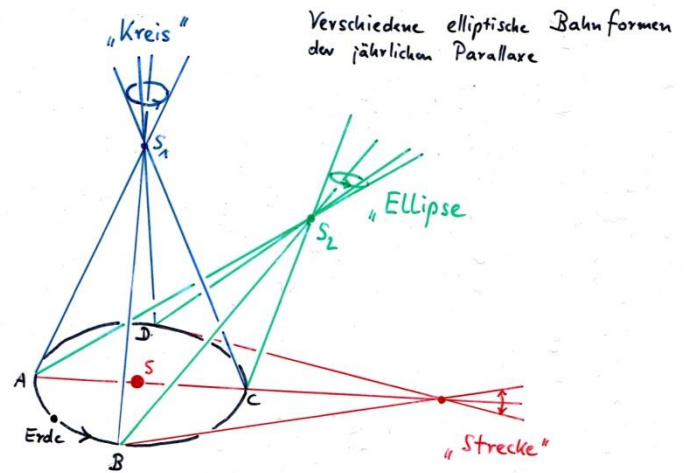 „Kreis"
Verschiedene elliptische Bahnformen
der jährlichen Parallaxe
S1
„Ellipse
S2
D
S
A
C
Erde
B
„Strecke"